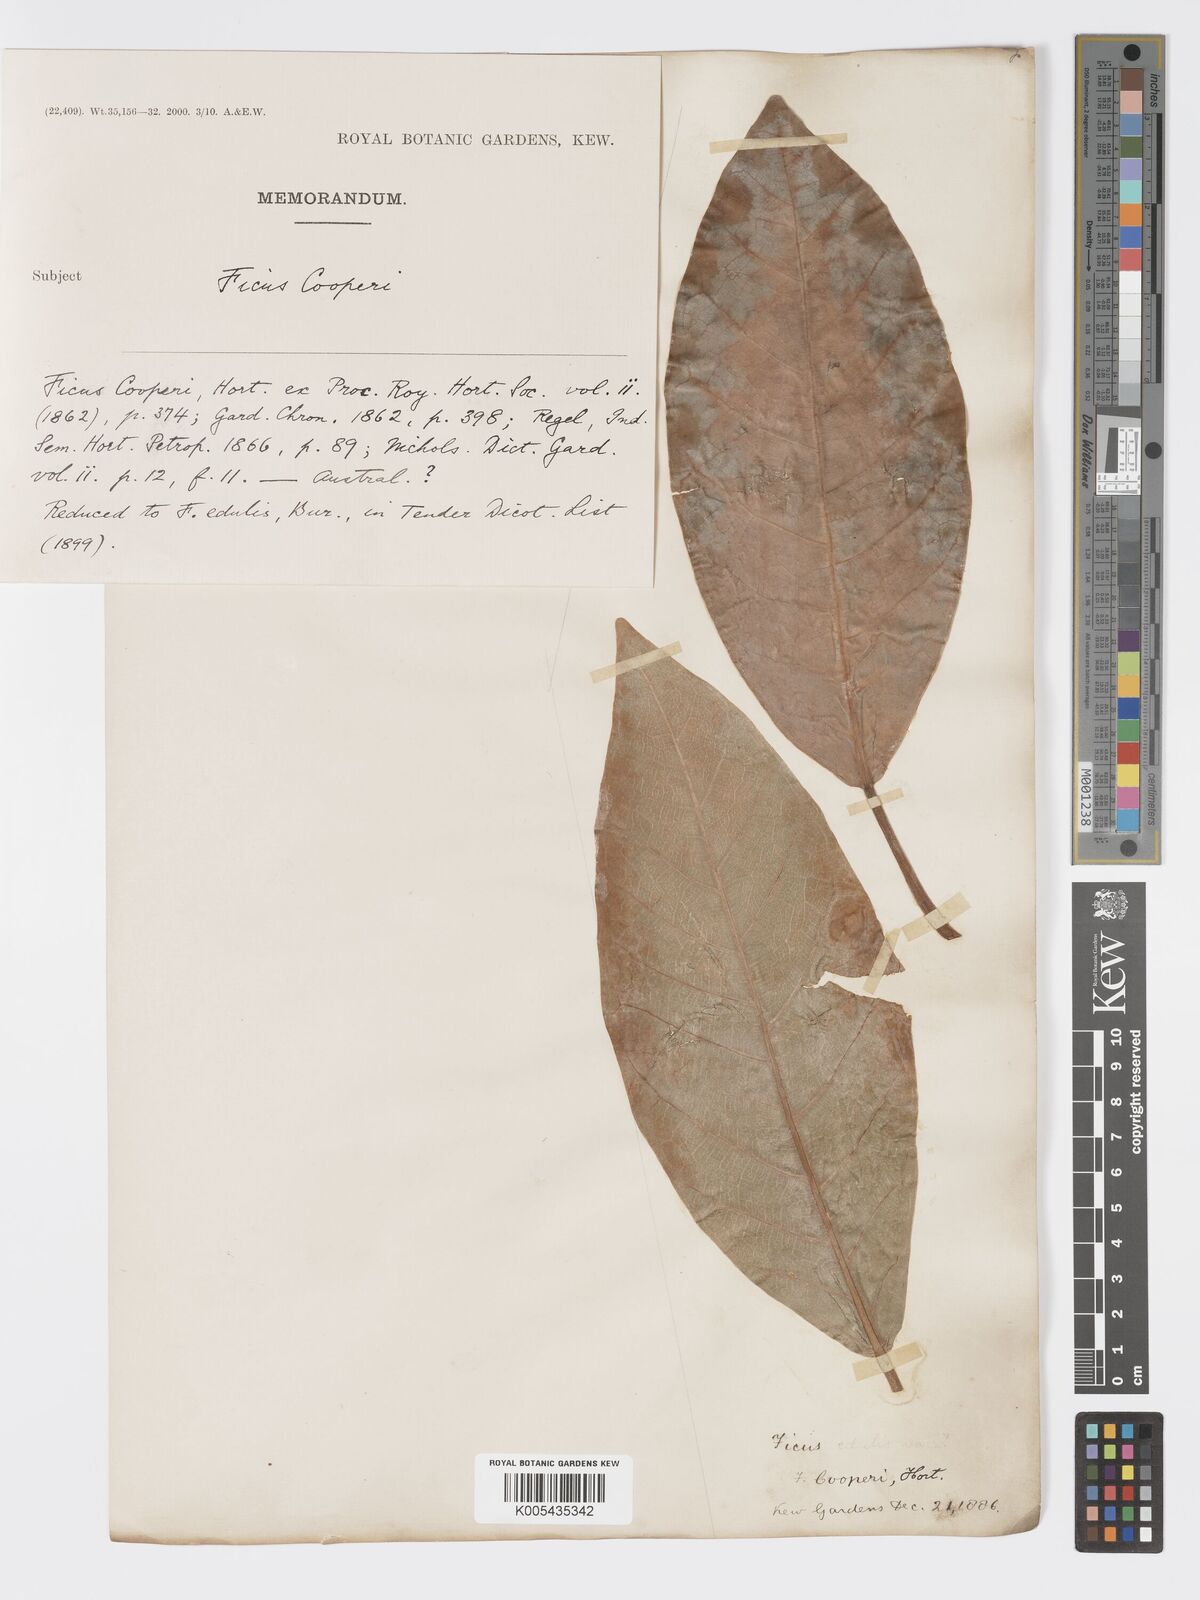 (22,409). Wt.35,156—32. 2000. 3/10. A.&E.W.
ROYAL BOTANIC GARDENS, KEW.
MEMORANDUM.
Subject Ficus Cooperi
Ficus Cooperi, Hort. ex Proc. Roy. Hort. Soc. vol. ii.
(1862), p. 374; Gard. Chron. 1862, p. 398; Regel, Ind.
Sem. Hort. Petrop. 1866, p. 89; Nichols. Dict. Gard.
vol. ii. p. 12, f. 11. — Austral. ?
Reduced to F. edulis, Bur., in Tender Dicot. List
(1899).
Ficus edulis
F. Cooperi, Hort.
Kew Gardens Dec. 21, 1886.
ROYAL BOTANIC GARDENS KEW
K005435342
inches
centimeters
Density
Don Williams
M001238
Kew
Royal Botanic Gardens
copyright reserved
0 1 2 3 4 5 6 7 8 9 10
cm